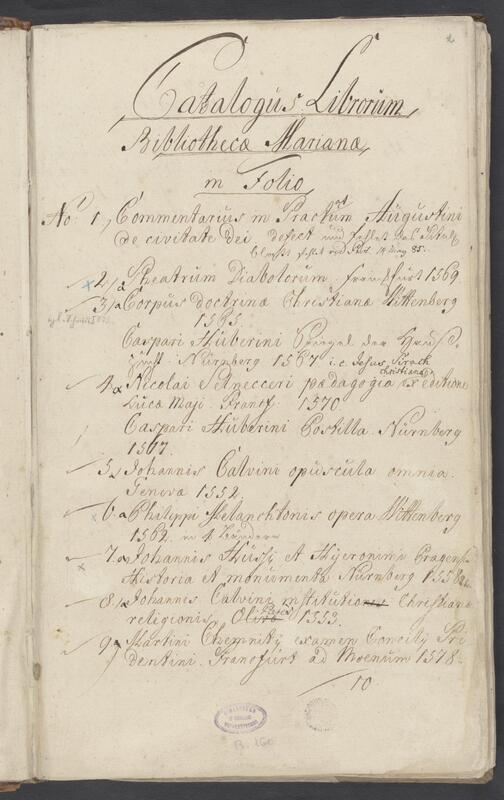 2
Catalogus Librorum
Bibliothecæ Marianæ
in Folio
No 1, Commentarius in Tractum Augustini
de civitate dei defect und fehlet das Titul
blatt fehlt
2, a Theatrum Diabolorum. franckfurt 1569.
3, a Corpus doctrinæ Christianæ Wittenberg
1565.
Caspari Huberini Spiegel der Hauß
Zucht. Nürnberg 1567 i.e. Jesus Sirach
4, a Nicolai Selnecceri pædagogia christiana ex editione
Lucæ Maji. Francf. 1570.
Caspari Huberini Postilla. Nürnberg
1567.
5, Johannis Calvini opuscula omnia.
Genevæ 1552.
6. a Philippi Melanchtonis opera Wittenberg
1562. in 4 Bänden
7. a Johannis Hussj et Hieronimi Pragensis
Historia et monumenta Nürnberg 1558
8. Johannis Calvini institutiones Christianæ
religionis, 1553.
9, a Martini Chemnitij examen Concilij Tri
dentini. Francfurt ad Moenum 1578.
10
B. 160